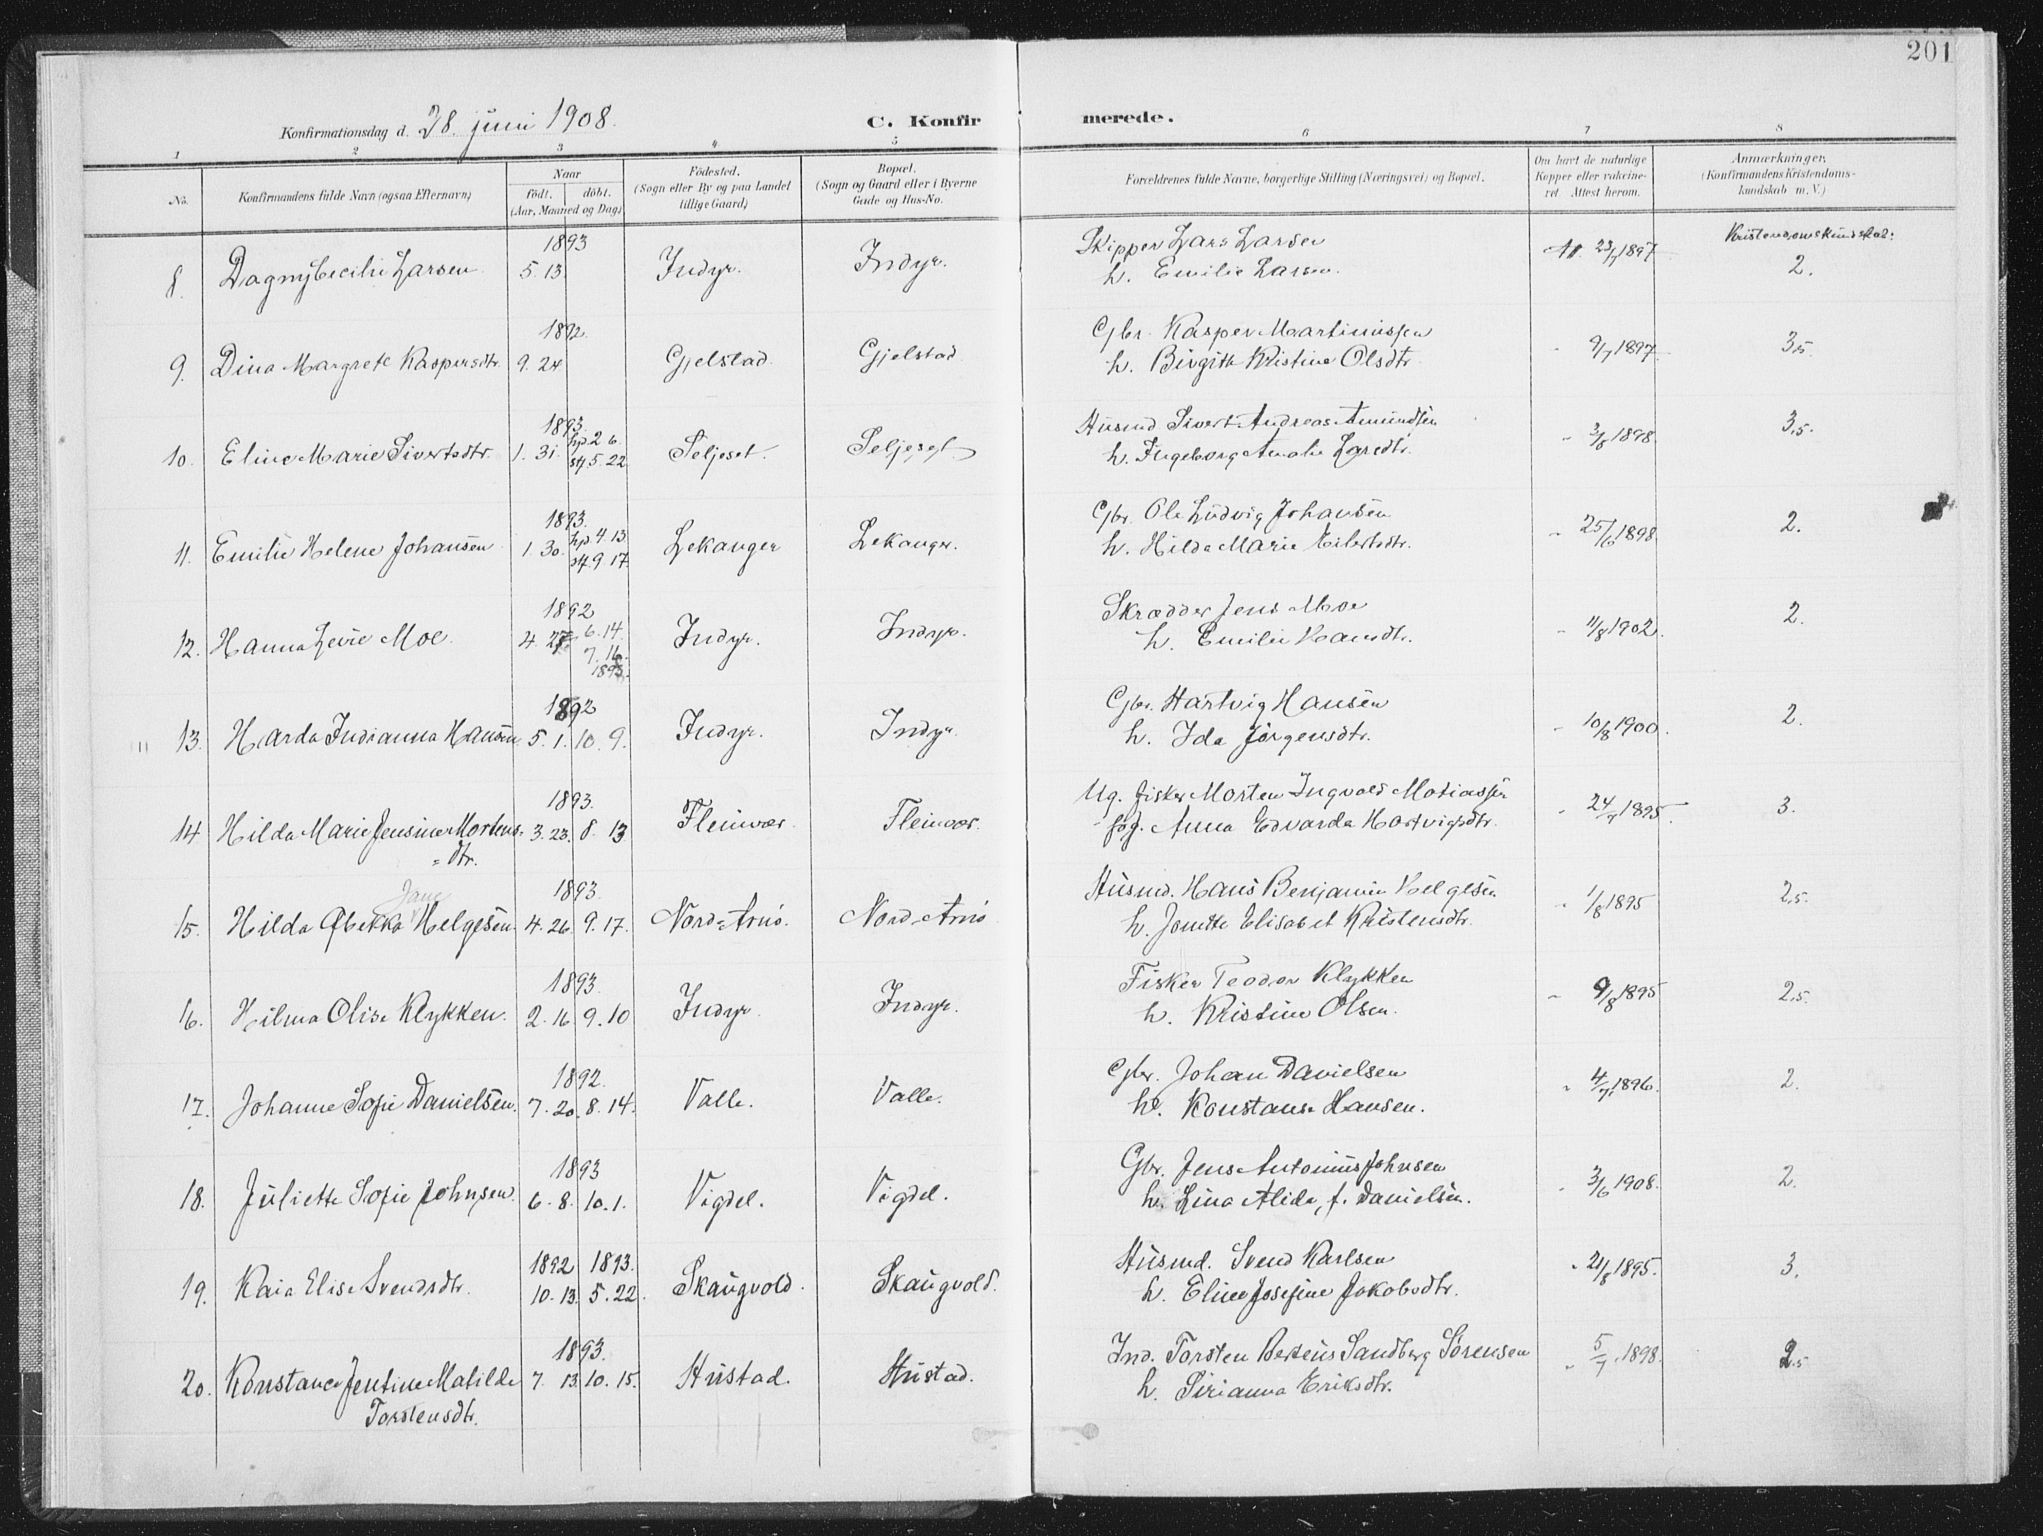 201
Konfirmationsdag d. 28. juni 1908.
C. Konfirmerede.
1 2 3 4 5 6 7 8
No. Konfirmandens fulde Navn (ogsaa Efternavn) Naar født. døbt. (Aar, Maaned og Dag) Fødested. (Sogn eller By og paa Landet tillige Gaard) Bopæl. (Sogn og Gaard eller i Byerne Gade og Hus-No. Forældrenes fulde Navne, borgerlige Stilling (Næringsvei) og Bopæl. Om havt de naturlige Kopper eller vaccineret. Attest herom. Anmærkninger. (Konfirmandens Kristendomskundskab m. V.)
1893 Skipper Lars Larsen 23/7 1897 Kristendomskundskab:
8. Dagny Cecilie Larsen 5. 13. Indyr. Indyr. h. Emilie Larsen. 2.
1892 Gbr. Kasper Martinussen
9. Dina Margrete Kaspersdtr. 9. 24 Gjelstad Gjelstad h. Birgithe Kristine Olsdtr. 9/7 1897. 3,5.
1893. hjd. 2 6. Husmd Sivert Andreas Amundsen
10. Eline Marie Sivertsdtr. 1. 31. stf. 5. 22 Seljeset. Seljeset h. Ingeborg Amalie Larsdtr. 3/8 1898. 3,5.
1893. hjd. 4. 13 Gbr. Ole Ludvig Johansen
11. Emilie Helene Johansen 1. 30. stf. 9. 17 Lekanger Lekanger. h. Hilda Marie Eilertsdtr. 25/6 1898. 2.
1892 6. 14. Skrædder Jens Moe
12. Hanna Levie Moe. 4. 27 7. 16. 1893. Indyr. Indyr. h. Emilie Hansdtr. 11/8 1902. 2.
1892 Gbr. Hartvig Hansen
13. Harda Indianna Hansen 5. 1. 10. 9. Indyr. Indyr. h. Ida Jørgensdtr. 10/8 1900. 2.
1893. Ug. fisker Morten Ingvald Matiassen
14. Hilda Marie Jensine Mortens- 3. 23. 8. 13 Fleinvær. Fleinvær. pig. Anna Edvarda Hartvigsdtr. 24/7 1895. 3.
dtr.
Jane 1893. Husmd. Hans Benjamin Helgesen
15. Hilda Helgesen. 4. 26. 9. 17. Nord-Arnø. Nord-Arnø h. Jonette Elisabet Kristensdtr. 1/8 1895 2,5.
1893. Fisker Teodor Klykken
16. Hilma Olise Klykken. 2. 16 9. 10 Indyr. Indyr. h. Kristine Olsen. 9/8 1895 2,5.
1892. Gbr. Johan Danielsen
17. Johanne Sofie Danielsen. 7. 20. 8. 14. Valle. Valle. h. Konstanse Hansen. 4/7 1896. 2.
1893 Gbr. Jens Antonius Johnsen
18. Juliette Sofie Johnsen. 6. 8. 10. 1. Vigdel. Vigdel. h. Lina Alida, f. Danielsen. 3/6 1908. 2.
1892 1893. Husmd. Svend Karlsen
19. Kaia Elise Svendsdtr. 10. 13. 5. 22. Skaugvold. Skaugvold. h. Eline Josefine Jakobsdtr. 21/8 1895. 3.
1893. Ind. Torsten Berteus Sandberg Sørensen
20. Konstance Jentine Matilde 7. 13. 10. 15. Hustad. Hustad. h. Sirianna Eriksdtr. 5/7 1898. 2,5
Torstensdtr.